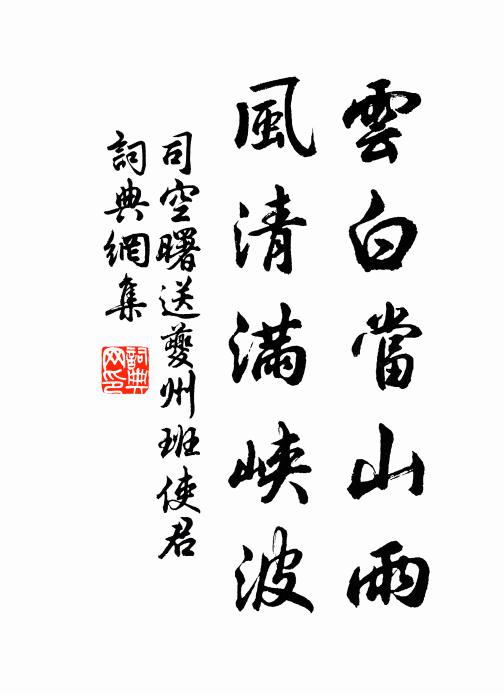 雲白當山雨
風清滿峽波
司空曙送夔州班使君
詞典網集
詞典
网印